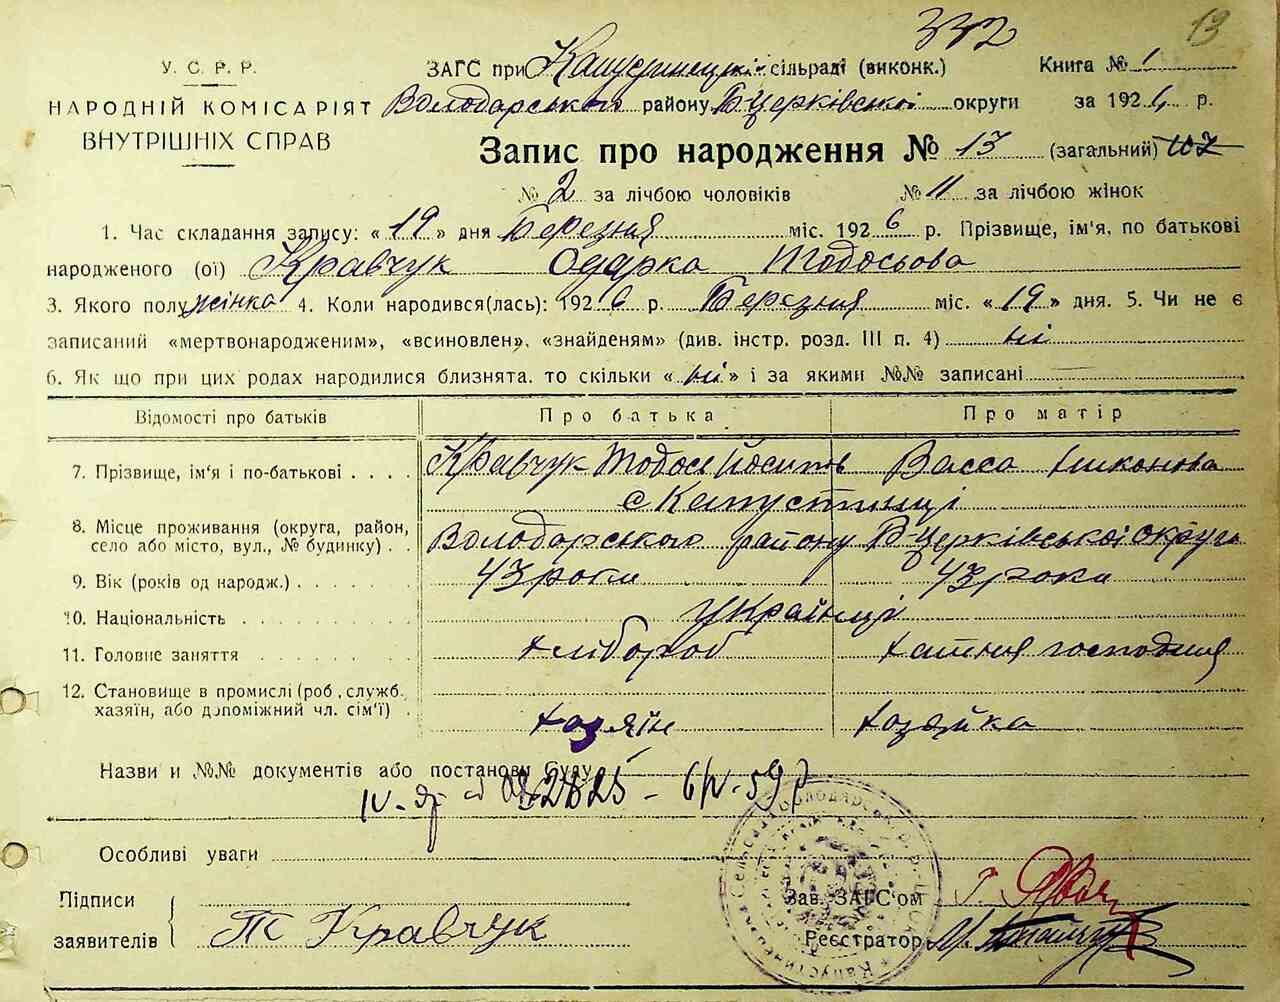 332 13
У. С. Р. Р.
НАРОДНІЙ КОМІСАРІЯТ
ВНУТРІШНІХ СПРАВ
ЗАГС при Капустинецкій сільраді (виконк.) Книга № 1
Володарського району Б Церківської округи за 1926 р.
Запис про народження № 13 (загальний)
№ 2 за лічбою чоловіків № 11 за лічбою жінок
1. Час складання запису: « 19 » дня Березня міс. 1926 р. Прізвище, ім'я, по батькові
народженого (ої) Кравчук Одарка Тодосьова
3. Якого полу жінка 4. Коли народився(лась): 1926 р. Березня міс. « 19 » дня. 5. Чи не є
записаний «мертвонародженим», «всиновлен», «знайденям» (див. інстр. розд. III п. 4) ні
6. Як що при цих родах народилися близнята. то скільки « ні » і за якими №№ записані
Відомості про батьків Про батька Про матір
7. Прізвище, ім'я і по-батькові Кравчук Тодось Йосипів Васса Никонова
с Капустинці
8. Місце проживання (округа, район,
село або місто, вул., № будинку) Володарського району Б-Церківської округи
9. Вік (років од народж.) 43 роки 43 роки
10. Національність Українці
11. Головне заняття хлібороб хатня господиня
12. Становище в промислі (роб., служб.
хазяїн, або допоміжний чл. сім'ї) хозяїн хозяйка
Назви и №№ документів або постанови Суду
Особливі уваги
Підписи
заявителів Т Кравчук
Зав. ЗАГС'ом
Реєстратор